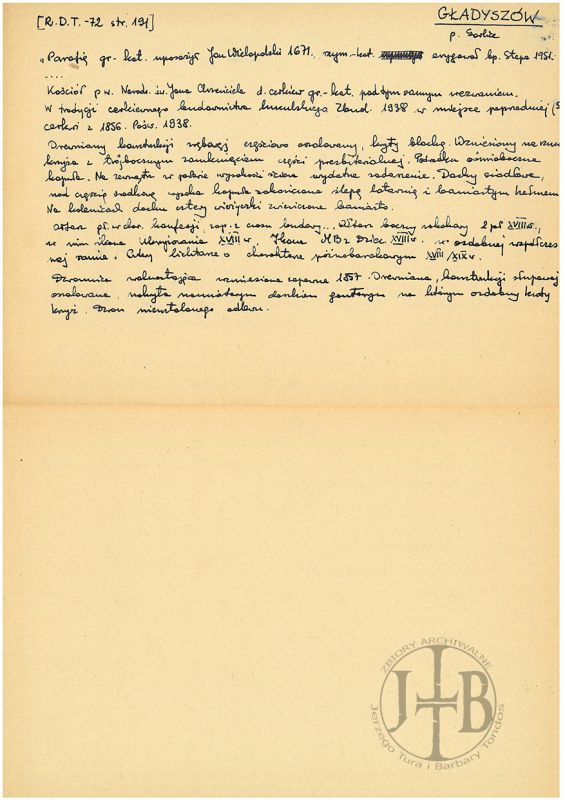 [R.D.T.-72 str. 191]
GŁADYSZÓW
p. Gorlice
„Parafię gr.-kat. uposażył Jan Wielopolski 1671, rzym.-kat. erygował bp. Stepa 1951.
....
Kościół p.w. Narodz. św. Jana Chrzciciela d. cerkiew gr.-kat. pod tym samym wezwaniem.
W tradycji cerkiewnego budownictwa huculskiego. Zbud. 1938 w miejsce poprzedniej
cerkwi z 1856. Pośw. 1938.
Drewniany konstrukcji zrębowej częściowo oszalowany, kryty blachą. Wzniesiony na
krzyża z trójbocznym zamknięciem części prezbiterialnej. Pośrodku ośmioboczna
kopuła. Na zewnątrz w połowie wysokości ścian wydatne zadaszenie. Dachy siodłowe,
nad częścią środkową wysoka kopuła zakończona ślepą latarnią i baniastym hełmem.
Na kalenicach dachu cztery wieżyczki zwieńczone baniasto.
Ołtarz gł. w char. konfesji, zap. z czasu budowy... Ołtarz boczny rokokowy 2 poł. XVIII w.,
w nim ikona Ukrzyżowania XVIII w. Ikona M.B. z Dziec. XVIII w. w ozdobnej współczes-
nej ramie. Cztery o charakterze późnobarokowym XVIII/XIX w.
Dzwonnica wolnostojąca wzniesiona zapewne 1857. Drewniana, konstrukcji słupowej
oszalowana, nakryta namiotowym daszkiem gontowym na którym ozdobny kuty
krzyż. Dzwon nieustalonego odlewu.
ZBIORY ARCHIWALNE
JTTB
Jerzego Tura i Barbary Tondos